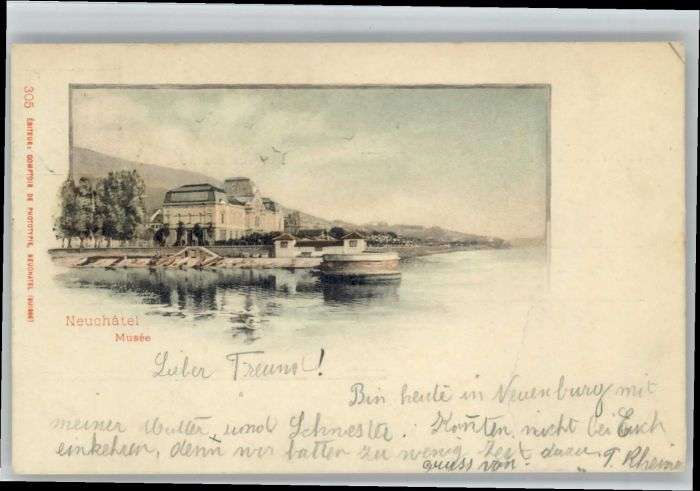 305 ÉDITEUR: COMPTOIR DE PHOTOTYPIE, NEUCHÂTEL (SUISSE)
Neuchâtel
Musée
Lieber Freund!
Bin heute in Neuenburg mit
meiner Mutter und Schwester. Konten nicht bei Euch
einkehren, denn wir hatten zu wenig Zeit dazu.
Gruss von